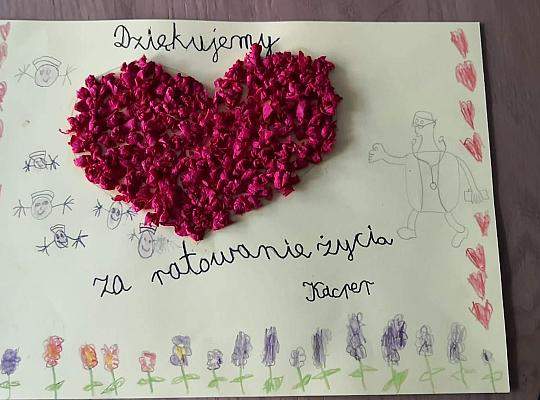 Dziękujemy
za ratowanie życia
Kacper